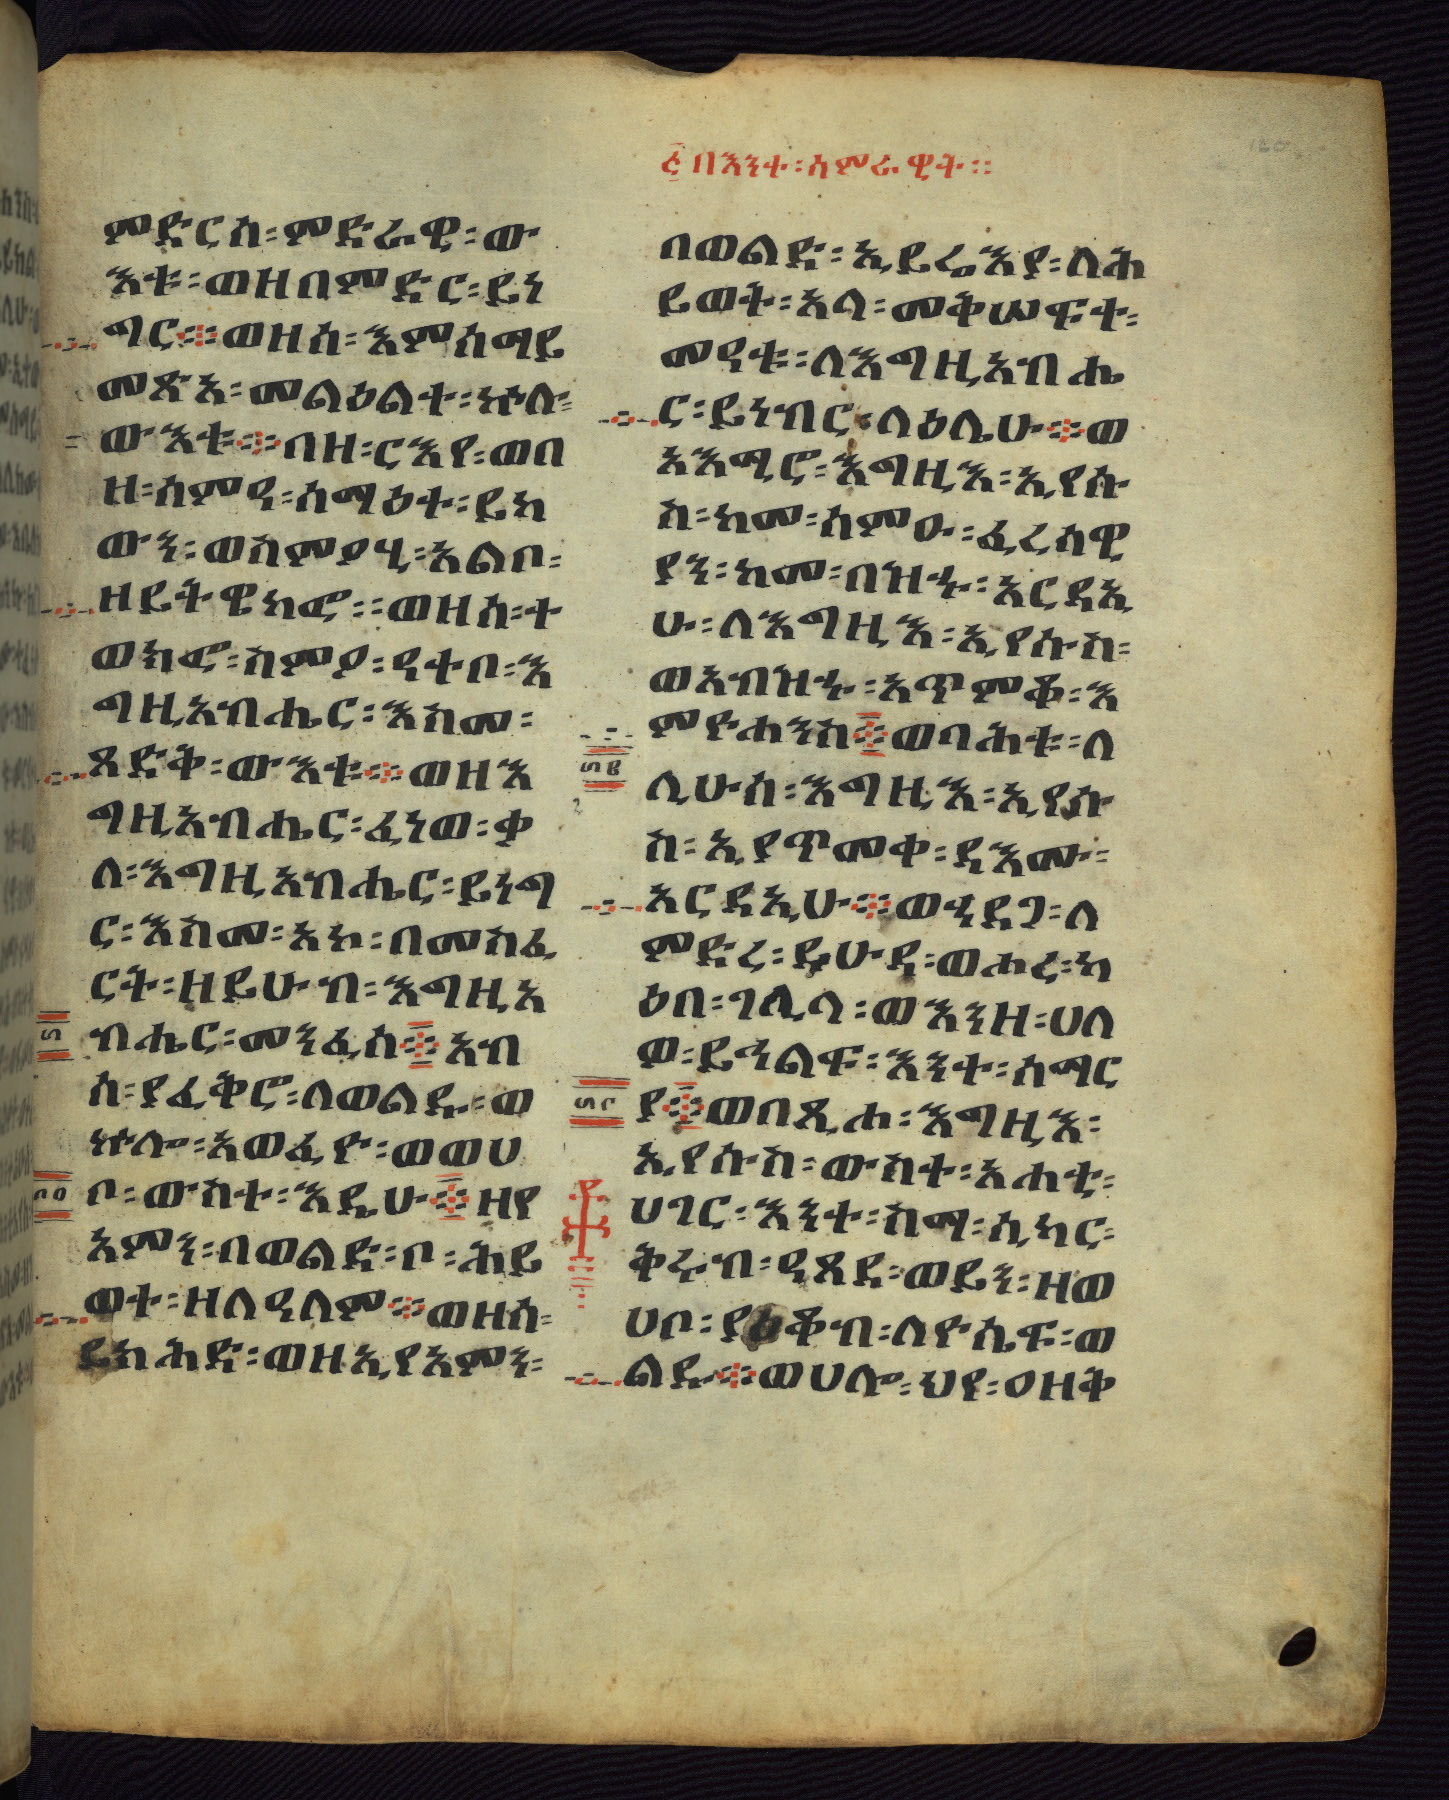 ፬ በእንተ፡ሳምራዊት፡፡
ምድርሰ፡ምድራዊ፡ው
እቱ፡ወዘበምድር፡ይነ
ግር፡፡ወዘሰ፡እምሰማይ
መጽአ፡መልዕልተ፡ኵሉ፡
ውእቱ፡፡በዘ፡ርእየ፡ወበ
ዘ፡ሰምዓ፡ሰማዕተ፡ይከ
ውን፡ወስምዖሂ፡አልቦ፡
ዘይትዌከፎ፡፡ወዘሰ፡ተ
ወክፎ፡ስምዖ፡ዓተቦ፡እ
ግዚአብሔር፡እስመ፡
ጻድቅ፡ውእቱ፡፡ወዘእ
ግዚአብሔር፡ፈነወ፡ቃ
ለ፡እግዚአብሔር፡ይነግ
ር፡እስመ፡አኮ፡በመስፈ
ርት፡ዘይሁብ፡እግዚአ
ብሔር፡መንፈሰ፡፡አብ
ሰ፡ያፈቅሮ፡ለወልዱ፡ወ
ኵሎ፡አወፈዮ፡ወወሀ
ቦ፡ውስተ፡እዴሁ፡፡ዘየ
አምን፡በወልድ፡ቦ፡ሕይ
ወተ፡ዘለዓለም፡፡ወዘሰ፡
ይክሕድ፡ወዘኢየአምን፡
በወልድ፡ኢይሬእያ፡ለሕ
ይወት፡አላ፡መቅሠፍተ፡
መዓቱ፡ለእግዚአብሔ
ር፡ይነብር፡ላዕሌሁ፡፡ወ
አእሚሮ፡እግዚእ፡ኢየሱ
ስ፡ከመ፡ሰምዑ፡ፈሪሳዊ
ያን፡ከመ፡በዝኁ፡አርዳኢ
ሁ፡ለእግዚእ፡ኢየሱስ፡
ወአብዝኁ፡አጥምቆ፡እ
ምዮሐንስ፡፡ወባሕቱ፡ለ
ሊሁሰ፡እግዚእ፡ኢየሱ
ስ፡ኢያጥመቀ፡ዳእሙ፡
አርዳኢሁ፡፡ወኀደጋ፡ለ
ምድረ፡ይሁዳ፡ወሐረ፡ካ
ዕበ፡ገሊላ፡ወእንዘ፡ሀለ
ዎ፡ይኅልፍ፡እንተ፡ሰማር
ያ፡፡ወበጺሐ፡እግዚእ፡
ኢየሱስ፡ውስተ፡አሐቲ፡
ሀገር፡እንተ፡ስማ፡ሲካር፡
ቅሩብ፡ዓጸደ፡ወይን፡ዘወ
ሀቦ፡ያዕቆብ፡ለዮሴፍ፡ወ
ልዱ፡፡ወሀሎ፡ህየ፡ዐዘቅ